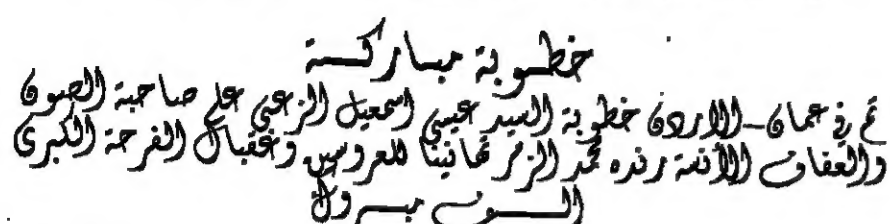 خطوبة مباركة
تم في عمان-الاردن خطوبة السيد عيسى اسمعيل الزعبي على صاحبة الصون
والعفاف الأنسة رنده محمد الزمر تهانينا للعروسين وعقبال الفرحة الكبرى
الف مبروك